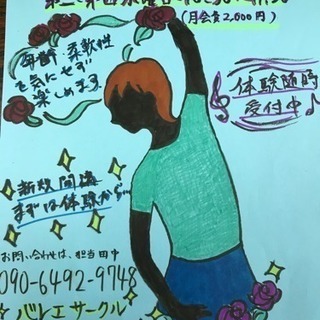 (月会費2,000円)
年齢 柔軟性
を気にせず
楽しめます
体験随時
受付中
まずは体験から…
お問い合わせは、担当田中
090-6492-9748
バレエサークル